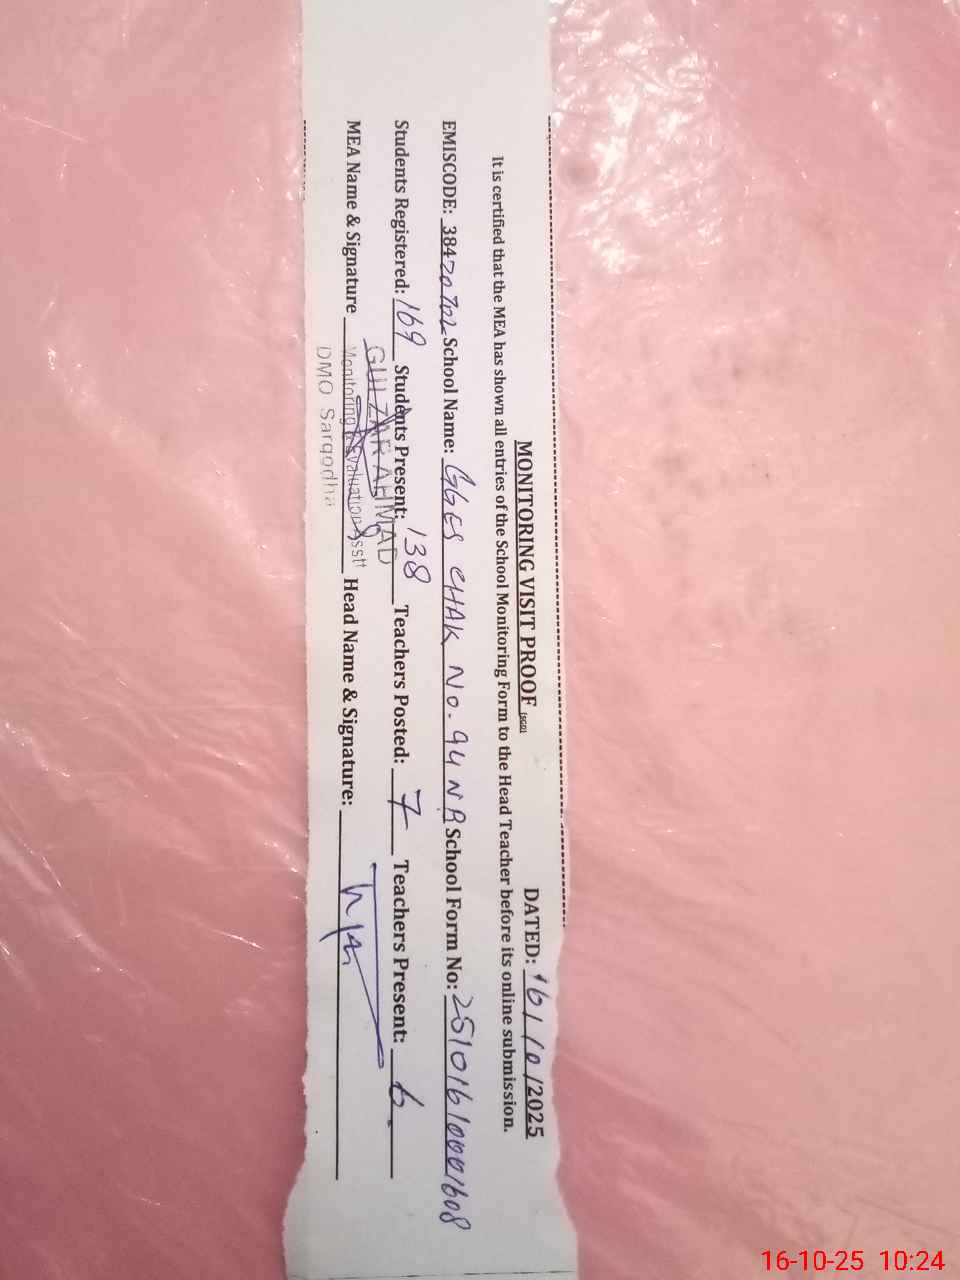 MONITORING VISIT PROOF (SGD) DATED: 16/10/2025
It is certified that the MEA has shown all entries of the School Monitoring Form to the Head Teacher before its online submission.
EMISCODE: 38420702 School Name: GGES CHAK No. 94 NB School Form No: 25101610001608
Students Registered: 169 Students Present: 138 Teachers Posted: 7 Teachers Present: 6
MEA Name & Signature Head Name & Signature:
GULZAR AHMAD
Monitoring & Evaluation Asst
DMO Sargodha
16-10-25 10:24